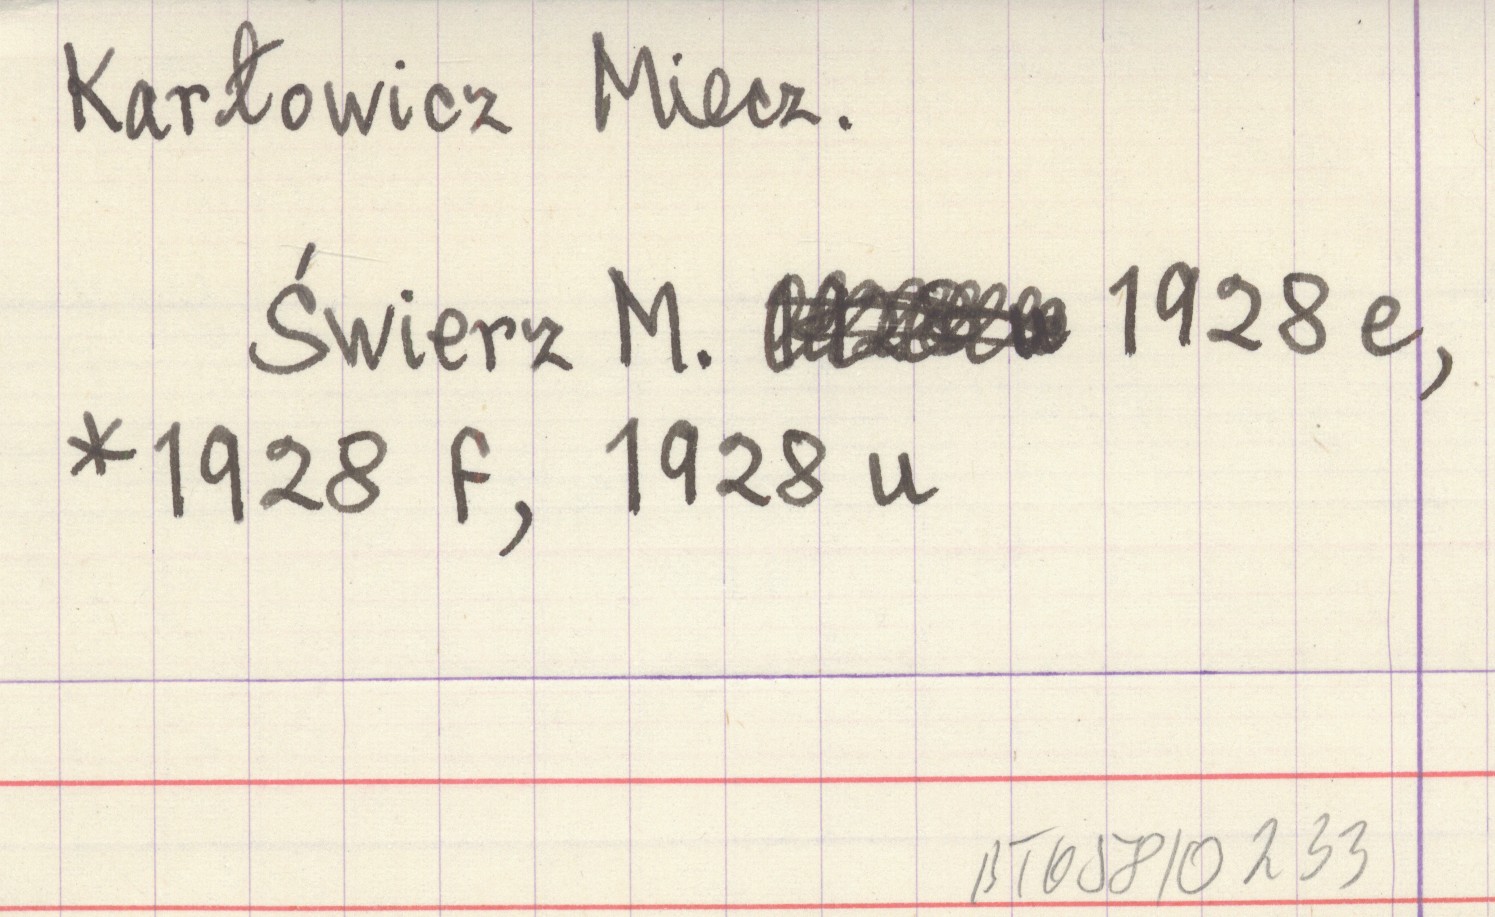 Karłowicz Miecz.
Świerz M. 1928 e,
*1928 f, 1928 u